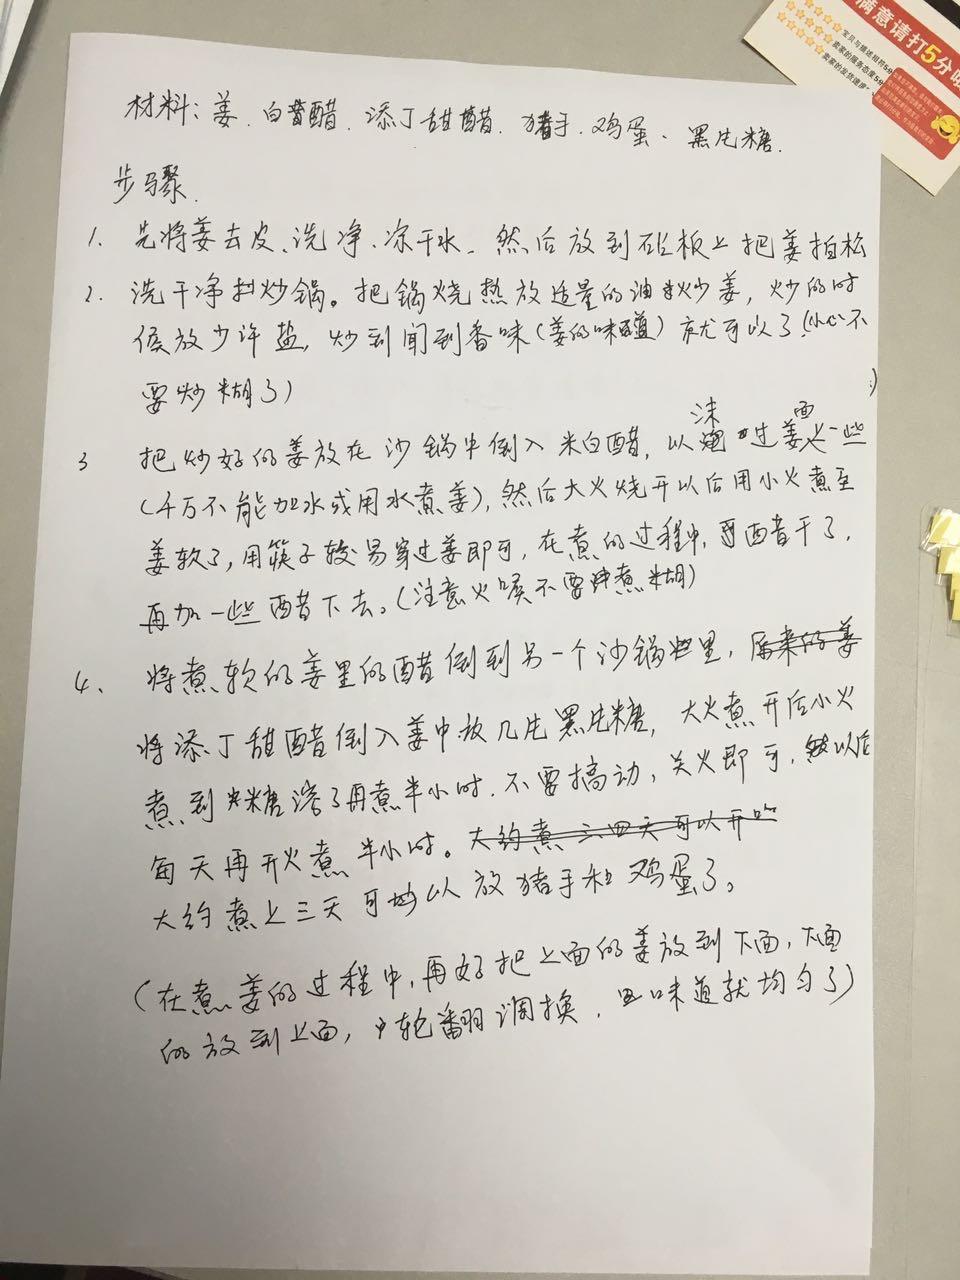 满意请打5分哦
宝贝与描述相符5分
卖家的服务态度5分
卖家的发货速度
材料：姜、白醋、添丁甜醋、猪手、鸡蛋、黑片糖.
步骤.
1、先将姜去皮、洗净、凉干水、然后放到砧板上把姜拍松
2、洗干净炒锅。把锅烧热放适量的油炒姜，炒的时
候放少许盐，炒到闻到香味（姜的味道）就可以了（小心不
要炒糊了）
3 把炒好的姜放在沙锅中倒入米白醋，以沫过姜面一些
（千万不能加水或用水煮姜），然后大火烧开以后用小火煮至
姜软了，用筷子较易穿过姜即可，在煮的过程中，醋干了，
再加一些醋下去。（注意火喉不要煮糊）
4、将煮软的姜里的醋倒到另一个沙锅里，原来的姜
将添丁甜醋倒入姜中放几片黑片糖，大火煮开后小火
煮到糖溶了再煮半小时.不要搞动，关火即可，以后
每天再开火煮半小时。大约煮三四天可以开吃
大约煮上三天可以放猪手和鸡蛋了。
（在煮姜的过程中，再好把上面的姜放到下面，下面
的放到上面，轮翻调换，味道就均匀了）